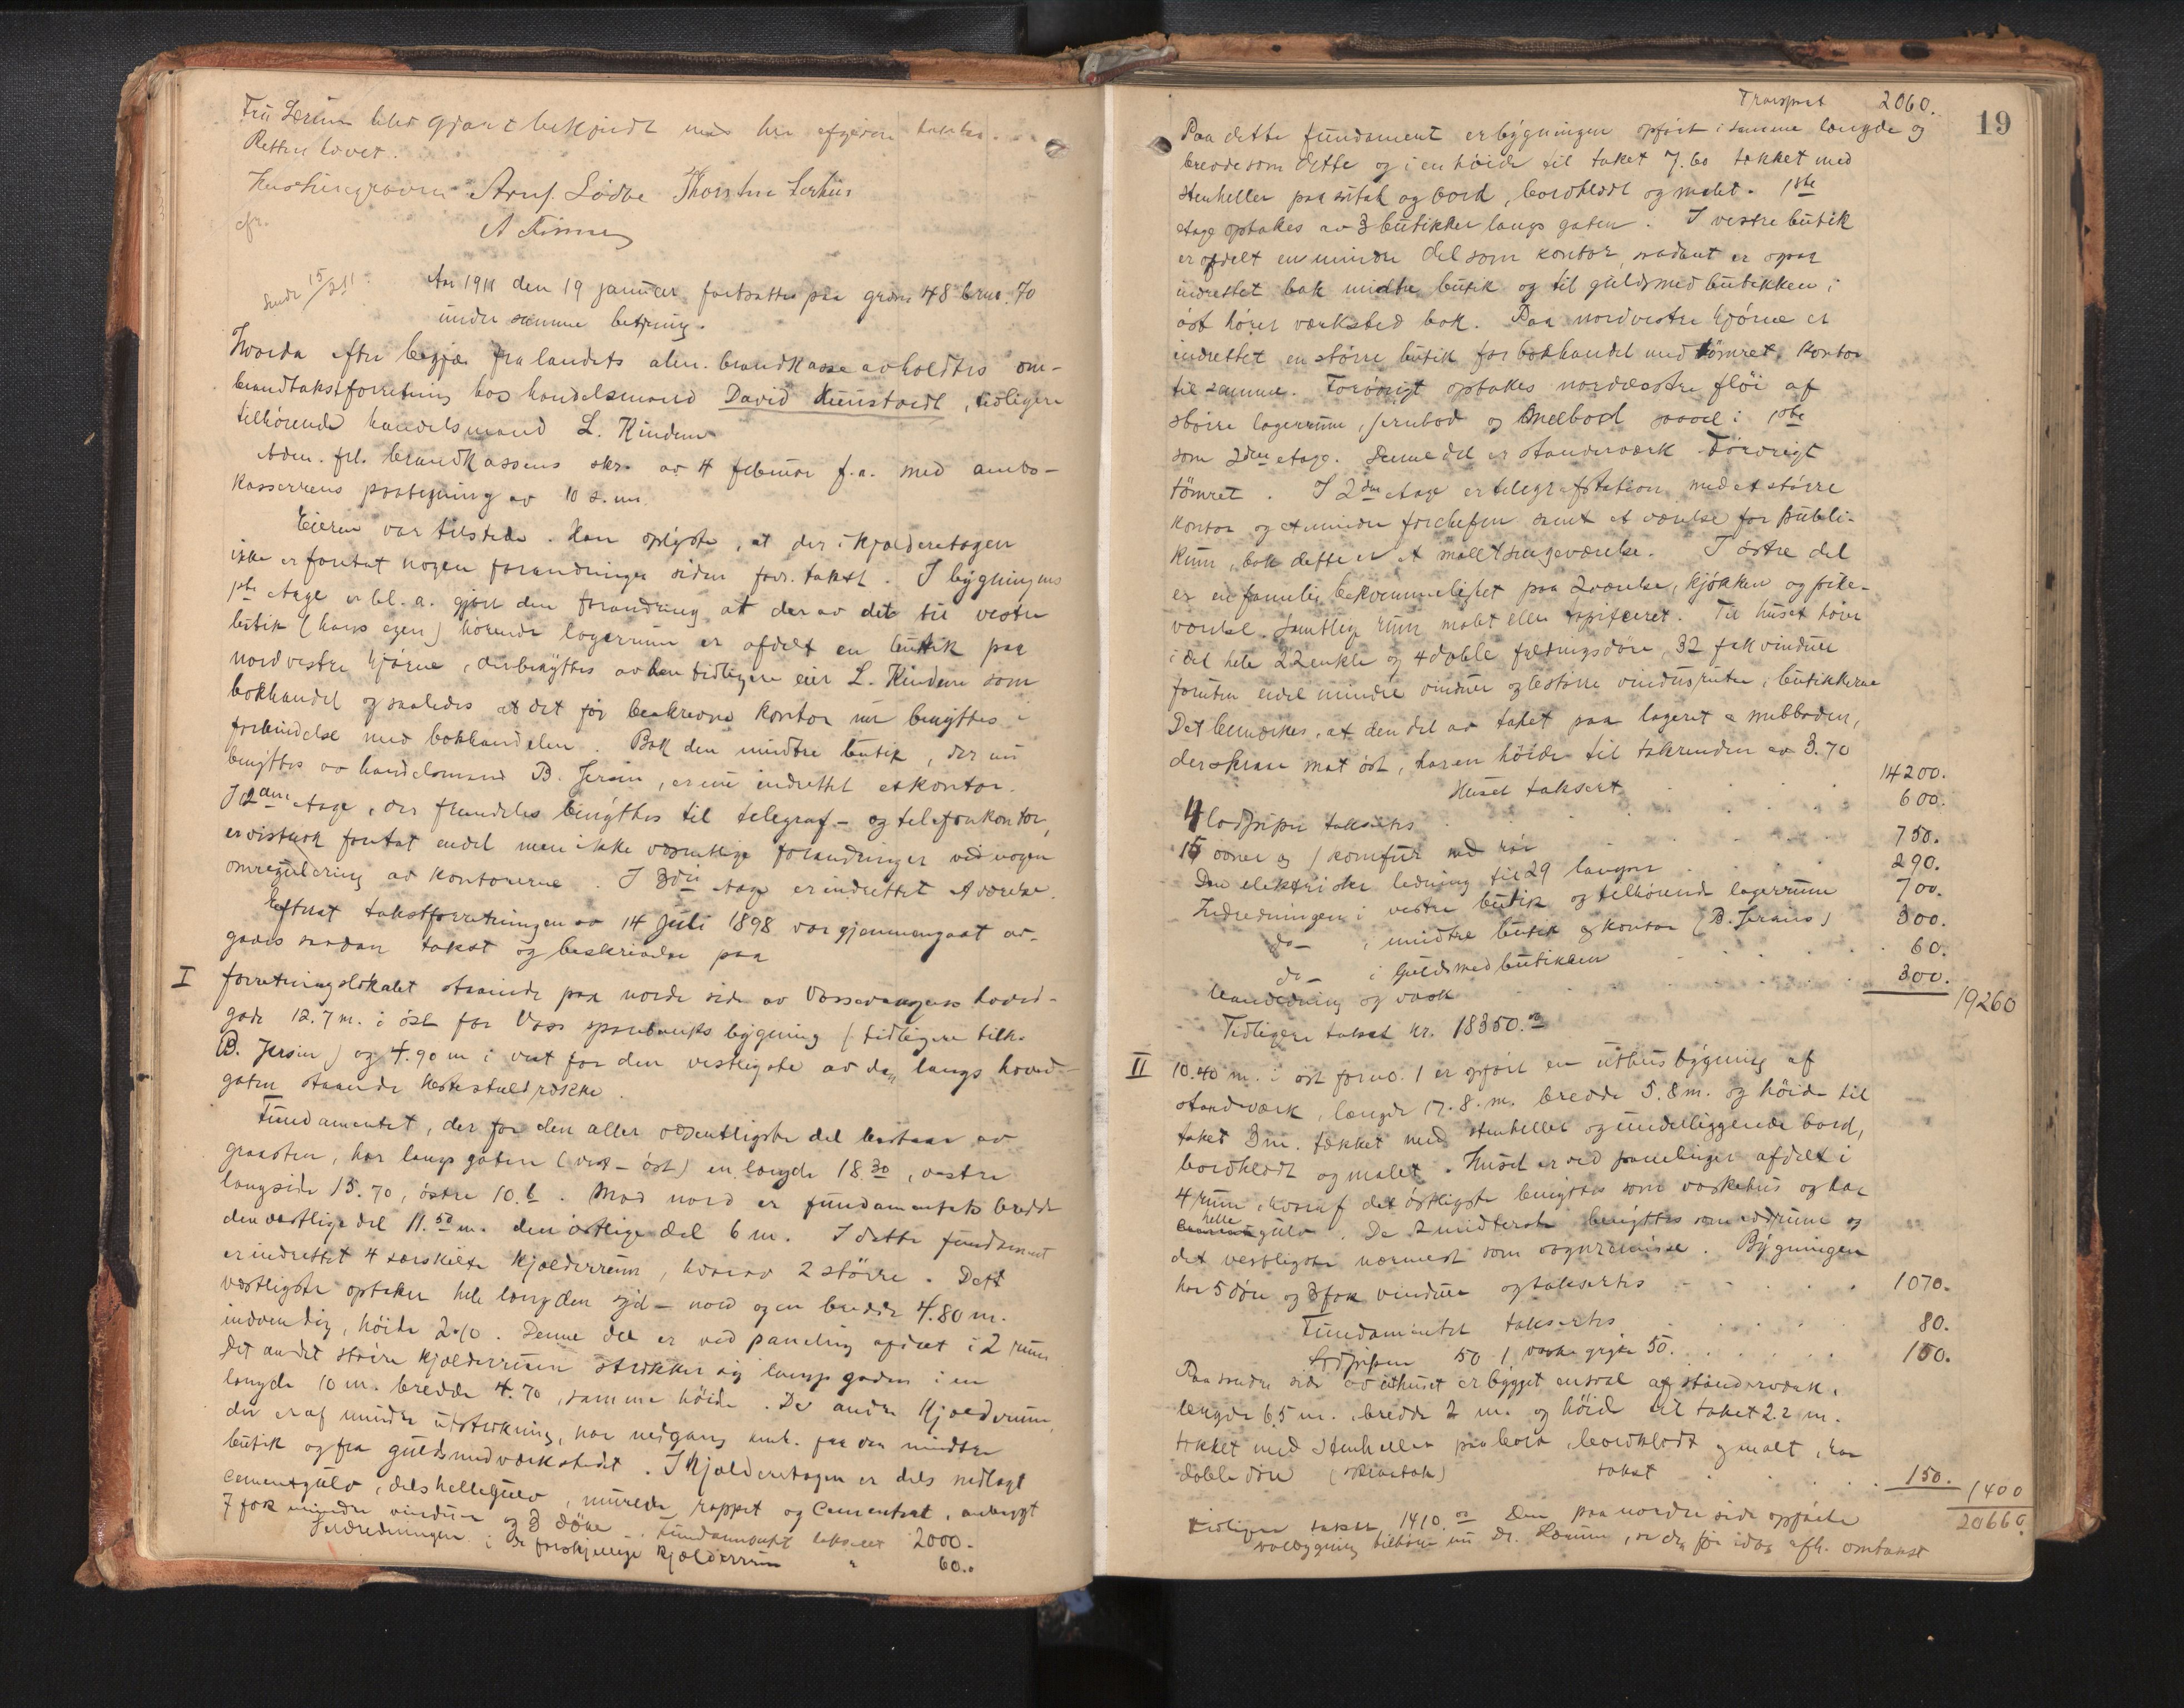 Fru Lærum blev gjort bekjendt med her afgivne takster.
Retten hævet.
Arnf. Lödve Thorstein Lirhus
A Finne
Sendt 15/2 11.
Aar 1911 den 19 januar fortsattes paa grdsno 48 brno. 70
under samme betjening.
Hvorda efter begjær fra landets alm. brandkasse avholdtes om-
brandtakstforretning hos handelsmand David Kunstvedt, tidligere
tilhørende handelsmand L. Kindem
Adm. frl. brandkassens skr. av 4 februar f.a. med ambs-
kasserens paategning av 10 s.m.
Eieren var tilstede. Han oplyste, at der i kjælderetagen
ikke er foretat nogen forandringer siden forr. takst. I bygningens
1ste etage er bl.a. gjort den forandring at der av det til vestre
butik (hans egen) hørende lagerrum er afdelt en butik paa
nordvestre hjørne, der benyttes av den tidligere eier L. Kindem som
bokhandel og saaledes at det før beskrevne kontor nu benyttes i
forbindelse med bokhandelen. Bak den midtre butik, der nu
benyttes av handelsmand B. Jersin, er nu indrettet et kontor.
I 2den etage, der fremdeles benyttes til telegraf- og telefonkontor,
er vistnok foretat endel men ikke væsentlige forandringer ved nogen
omregulering av kontorerne. I 3die etage er indrettet et værelse.
Efterat takstforretningen av 14 juli 1898 var gjennemgaat av-
gaves saadan takst og beskrivelse paa
I forretningslokalet staaende paa nordre side av Vossevangens hoved-
gade 12.7 m. i øst for Voss sparebanks bygning (tidligere tilh.
B. Jersin) og 4.90 m i vest for den vestligste av de langs hoved-
gaten staaende hestestaldrække.
Fundamentet, der for den aller væsentligste del bestaar av
graasten, har langs gaten (vest-øst) en længde 18.30, vestre
langside 15.70, østre 10.6. Mod nord er fundamentets bredde
den vestlige del 11.50 m. den østlige del 6 m. I dette fundament
er indrettet 4 særskilte kjælderrum, hvorav 2 större. Det
vestligste optaker hele længden syd-nord og en bredde 4.80 m.
indvendig, höide 2.10. Denne del er ved paneling afdelt i 2 rum
Det andet större kjælderrum strækker sig langs gaden i en
længde 10 m. bredde 4.70, samme höide. De andre kjælderrum,
der er af mindre utstrækning, har nedgang fra den midtre
butik og fra guldsmedverkstedet. I kjælderetagen er dels nedlagt
cementgulv, dels hellegulv, murede, rappet og cementeret, anbragt
7 fak mindre vinduer og 3 döre. Fundamentet takseret 2000.
Indredningen i de forskjellige kjælderrum " 60..
19
Transport 2060.
Paa dette fundament er bygningen opført i samme længde og
bredde som dette og i en höide til taket 7.60 tækket med
stenheller paa sutak og bord, bordklædt og malet. 1ste
etage optakes av 3 butikker langs gaten. I vestre butik
er afdelt en mindre del som kontor, saadant er ogsaa
indrettet bak midtre butik og til guldsmedbutikken i
öst hörer værksted bak. Paa nordvestre hjörne er
indrettet en större butik for bokhandel med tömret kontor
til samme. Forövrigt optakes nordöstre flöi af
större lagerrum, jernbod og melbod saavel i 1ste
som 2den etage. Denne del er standerværk forövrigt
tömret. I 2den etage er telegrafstation med et större
kontor og et mindre for chefen samt et værelse for publi-
kum, bak dette er et malet sengeværelse. I östre del
er en familiebekvemmelighet paa 2 værelse, kjökken og pike-
værelse. Samtlige rum malet eller tapetseret. Til huset hörer
i det hele 22 enkle og 4 doble fyldningsdöre, 32 fak vinduer
foruten endel mindre vinduer og 6 större vindusruter i butikkerne
Det bemærkes, at den del av taket paa lageret & melboden,
der skraar mot öst, har en höide til takrenden av 3.70
Huset taksert 14200.
4 lodpiper takseres 600.
15 ovner og 1 komfur med rör 750.
Den elektriske ledning til 29 lamper 290.
Indredningen i vestre butik og tilhörende lagerrum 700.
do- i midtre butik og kontor (B. Jersins) 300.
do- i Guldsmedbutikken 60.
Vandledning og vask 300. 19260
Tidligere takst kr. 18350.00
II 10.40 m. i öst for no. 1 er opfört en uthusbygning af
standerværk, længde 17.8 m. bredde 5.8 m. og höide til
taket 3 m. tækket med stenheller og underliggende bord,
bordklædt og malet. Huset er ved panelinger afdelt i
4 rum, hvoraf det östligste benyttes som vaskehus og har
helle gulv. De 2 midterste benyttes som vedrum og
det vestligste nærmest som vognremisse. Bygningen
har 5 döre og 3 fak vinduer og takseres 1070.
Fundamentet takseres 80.
Lodpipen 50 1 vaskegryte 50. 100.
Paa söndre side av uthuset er bygget en sval af standerværk,
længde 6.5 m. bredde 2 m. og höide til taket 2.2 m.
tækket med stenheller paa bord, bordklædt og malt, har
doble döre (skraatak) takst 150. 1400
Tidligere takst 1410.00 Den paa nordre side opförte 20660.
vedbygning tilhörer nu dr. Lærum, se den før idag afh. omtakst